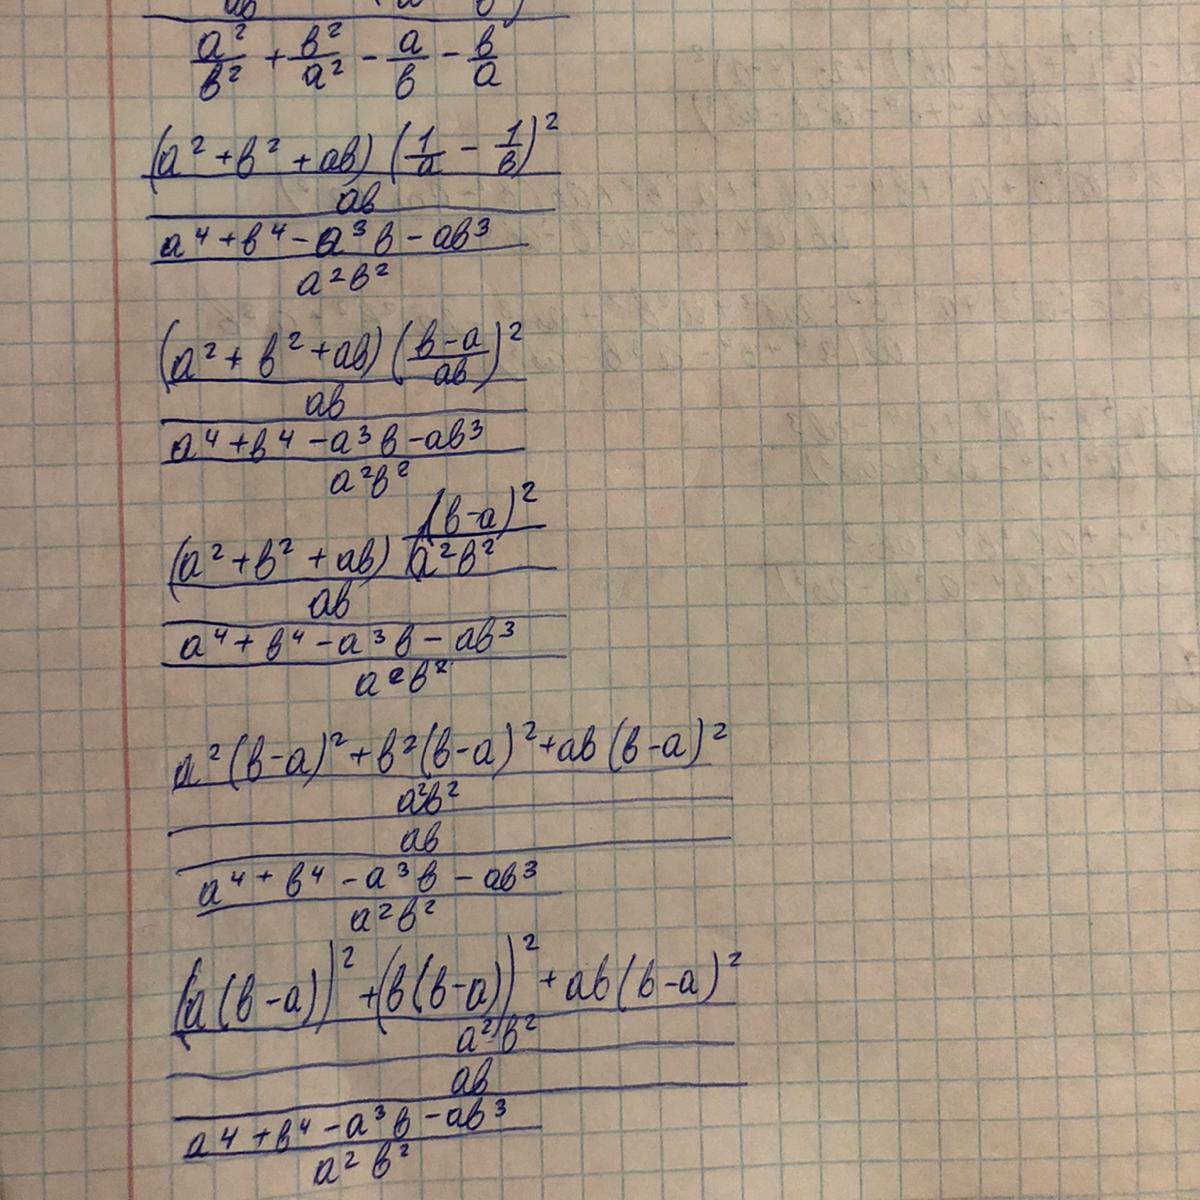 ab
a²/b² + b²/a² - a/b - b/a
(a² + b² + ab) (1/a - 1/b)²
ab
a⁴ + b⁴ - a³b - ab³
a²b²
(a² + b² + ab) ((b-a)/ab)²
ab
a⁴ + b⁴ - a³b - ab³
a²b²
(a² + b² + ab) (b-a)²/a²b²
ab
a⁴ + b⁴ - a³b - ab³
a²b²
a²(b-a)² + b²(b-a)² + ab(b-a)²
a²b²
ab
a⁴ + b⁴ - a³b - ab³
a²b²
(a(b-a))² + (b(b-a))² + ab(b-a)²
a²b²
ab
a⁴ + b⁴ - a³b - ab³
a²b²